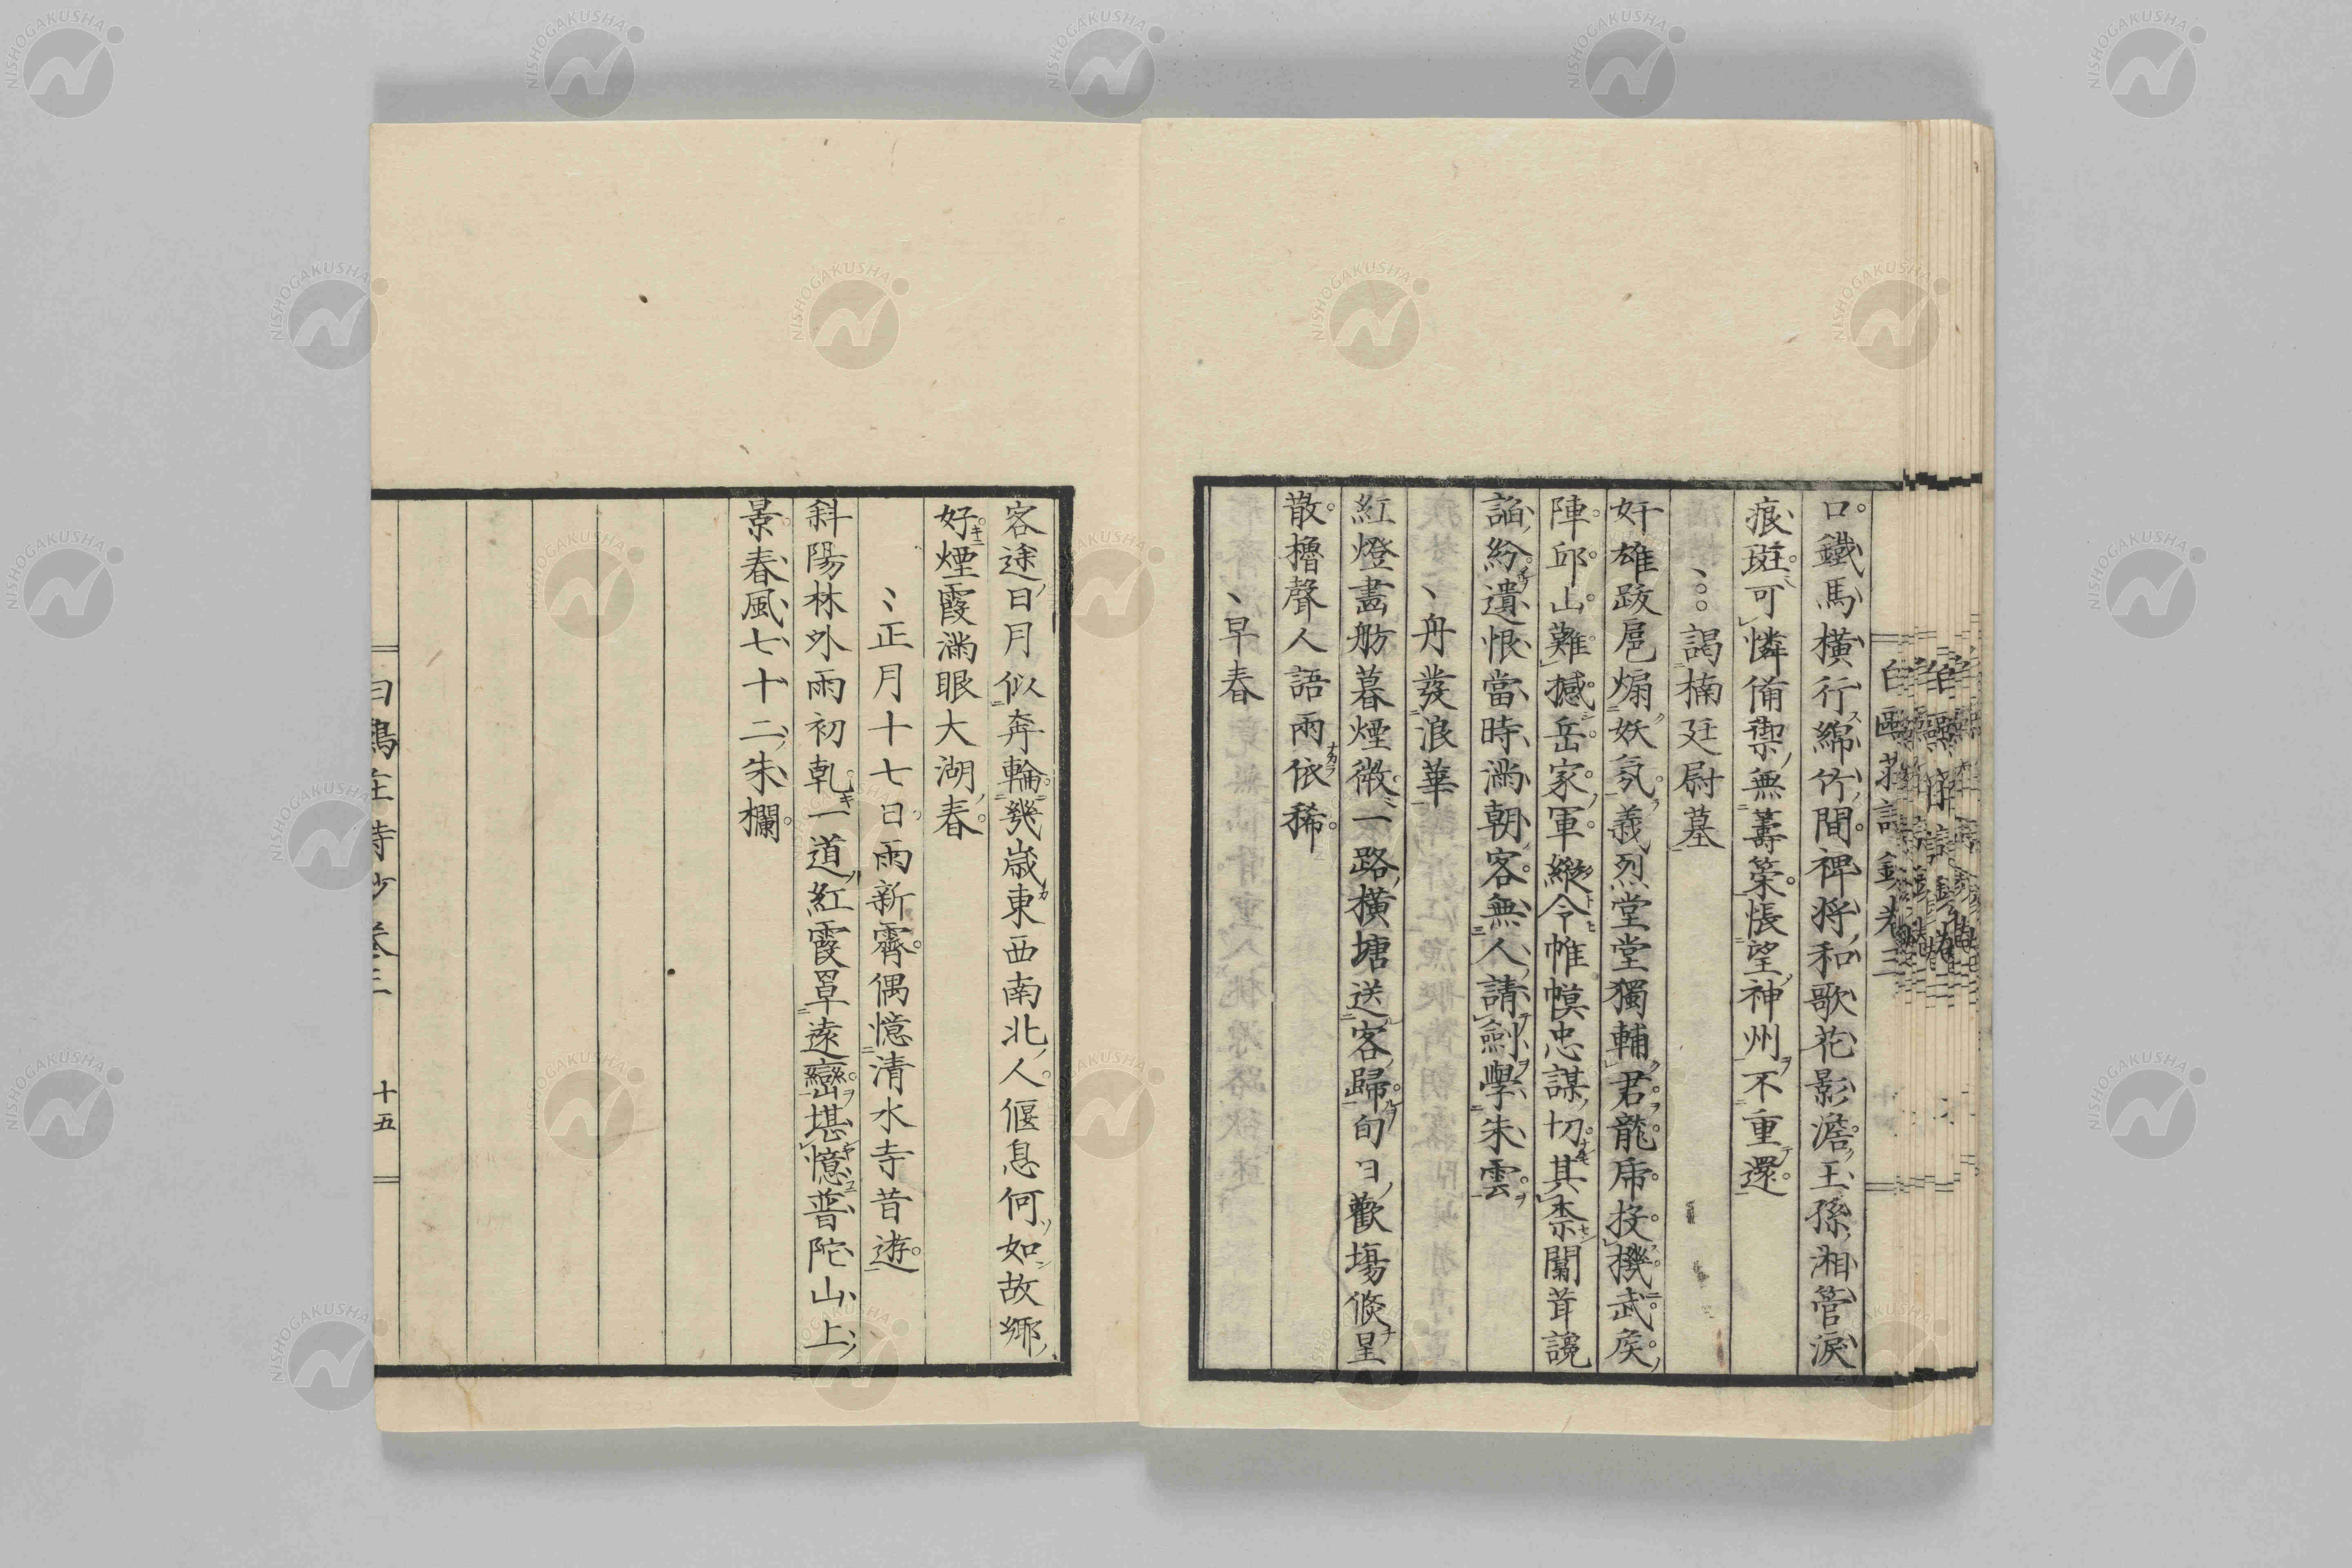 口鐵馬橫行綿竹間裨將和歌花影澹王孫湘管淚
痕斑可憐備禦無籌策悵望神州不重還
謁楠廷尉墓
奸雄跋扈煽妖氛義烈堂堂獨輔君龍虎投機武侯
陣邱山難撼岳家軍縱令帷幄忠謀切其柰闒茸讒
諂紛遺恨當時滿朝客無人請劍學朱雲
舟發浪華
紅燈畫舫暮煙微一路橫塘送客歸旬日歡場倏星
散櫓聲人語雨依稀
早春
客途日月似奔輪幾歲東西南北人偃息何如故鄉
好煙霞滿眼大湖春
正月十七日雨新霽偶憶清水寺昔遊
斜陽林外雨初乾一道紅霞罩遠巒堪憶普陀山上
景春風七十二朱欄
白鷗莊詩鈔卷三
十五
NISHOGAKUSHA